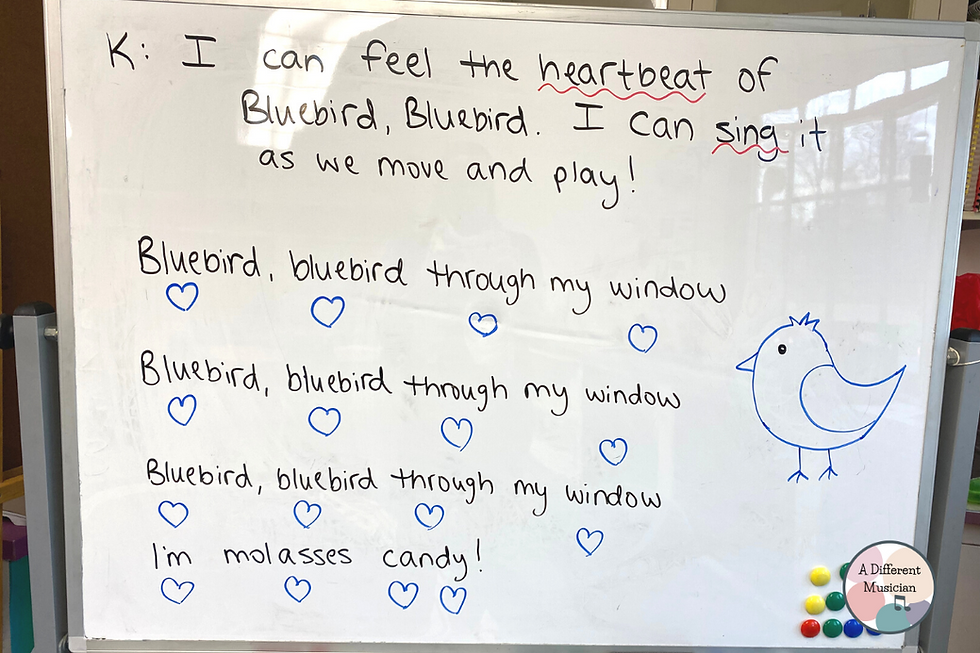 K: I can feel the heartbeat of
Bluebird, Bluebird. I can sing it
as we move and play!
Bluebird, bluebird through my window
Bluebird, bluebird through my window
Bluebird, bluebird through my window
I'm molasses candy!
A Different
Musician